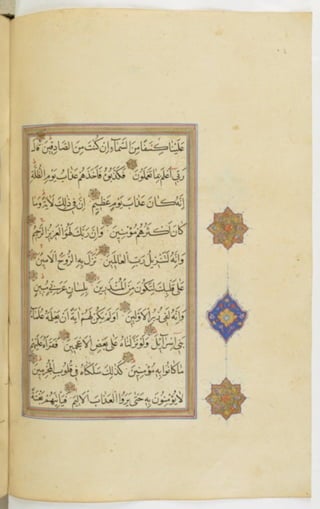 علينا كسفا من السماء ان كنت من الصادقين قال
ربي اعلم بما تعملون فكذبوه فاخذهم عذاب يوم الظلة
انه كان عذاب يوم عظيم ان في ذلك لاية وما
كان اكثرهم مؤمنين وان ربك لهو العزيز الرحيم
وانه لتنزيل رب العالمين نزل به الروح الامين
على قلبك لتكون من المنذرين بلسان عربي مبين
وانه لفي زبر الاولين اولم يكن لهم اية ان يعلمه علماء
بني اسرائيل ولو نزلناه على بعض الاعجمين فقراه عليهم
ما كانوا به مؤمنين كذلك سلكناه في قلوب المجرمين
لا يؤمنون به حتى يروا العذاب الاليم فياتيهم بغتة